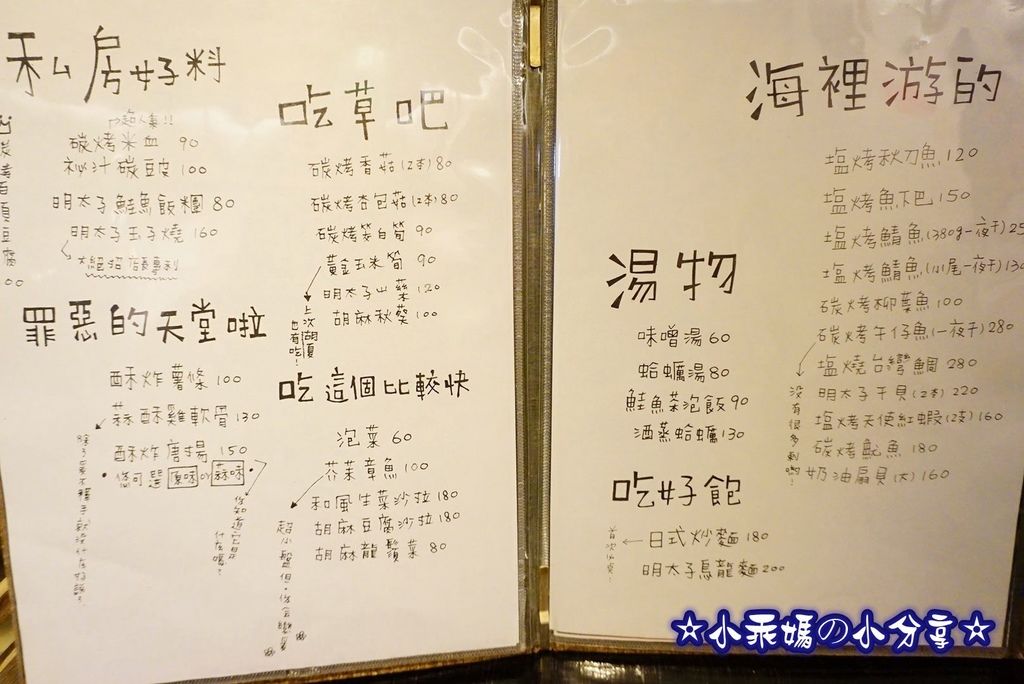 私房好料
超人氣!!
碳烤米血 90
祕汁碳豆皮 100
明太子鮭魚飯糰 80
明太子玉子燒 160
大絕招 店長專利
罪惡的天堂啦
酥炸薯條 100
蒜酥雞軟骨 130
酥炸唐揚 150
您可選 原味 or 蒜味
你知道它是什在嗎?
吃草吧
碳烤香菇(2本) 80
碳烤杏包菇(2本) 80
碳烤筊白筍 90
黃金玉米筍 90
明太子山藥 120
胡麻秋葵 100
吃這個比較快
泡菜 60
芥茉章魚 100
和風生菜沙拉 180
胡麻豆腐沙拉 180
胡麻龍鬚菜 80
湯物
味噌湯 60
蛤蠣湯 80
鮭魚茶泡飯 90
酒蒸蛤蠣 130
吃好飽
日式炒麵 180
明太子烏龍麵 200
海裡游的
塩烤秋刀魚 120
塩烤魚下巴 150
塩烤鯖魚(380g一夜干) 25
塩烤鯖魚(小尾一夜干) 130
碳烤柳葉魚 100
碳烤午仔魚(一夜干) 280
塩燒台灣鯛 280
明太子干貝(2本) 220
塩烤天使紅蝦(2支) 160
碳烤魷魚 180
奶油扇貝(大) 160
沒有很多刺喲!
☆小乖媽の小分享☆